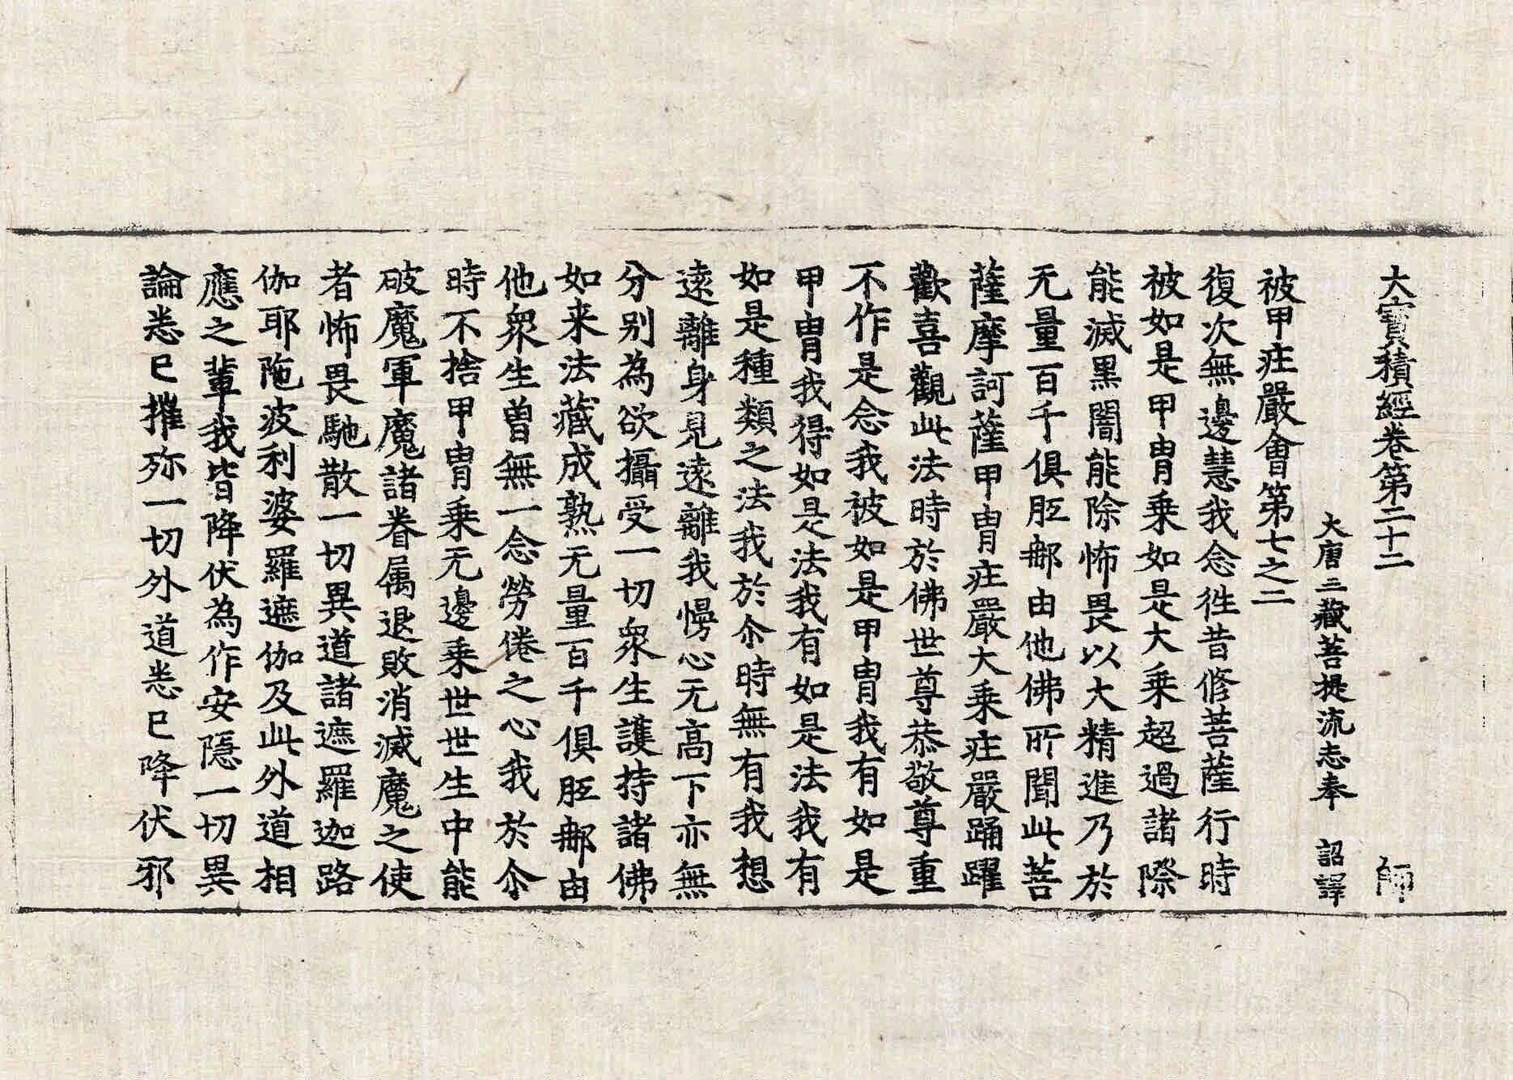 大寶積經卷第二十二　師
大唐三藏菩提流志奉　詔譯
被甲莊嚴會第七之二
復次無邊慧我念徃昔修菩薩行時
被如是甲冑乗如是大乗超過諸際
能滅黒闇能除怖畏以大精進乃於
无量百千俱胝𨚗由他佛所聞此菩
薩摩訶薩甲冑莊嚴大乗莊嚴踊躍
歡喜觀此法時於佛世尊恭敬尊重
不作是念我被如是甲冑我有如是
甲冑我得如是法我有如是法我有
如是種類之法我於尒時無有我想
逺離身見逺離我慢心无高下亦無
分别為欲攝受一切衆生護持諸佛
如来法藏成熟无量百千俱胝𨚗由
他衆生曽無一念勞倦之心我於尒
時不捨甲冑乗无邊乗世世生中能
破魔軍魔諸眷属退敗消滅魔之使
者怖畏馳散一切異道諸遮羅迦路
伽耶陁波利婆羅遮伽及此外道相
應之輩我皆降伏為作安隱一切異
論悉已摧殄一切外道悉已降伏邪